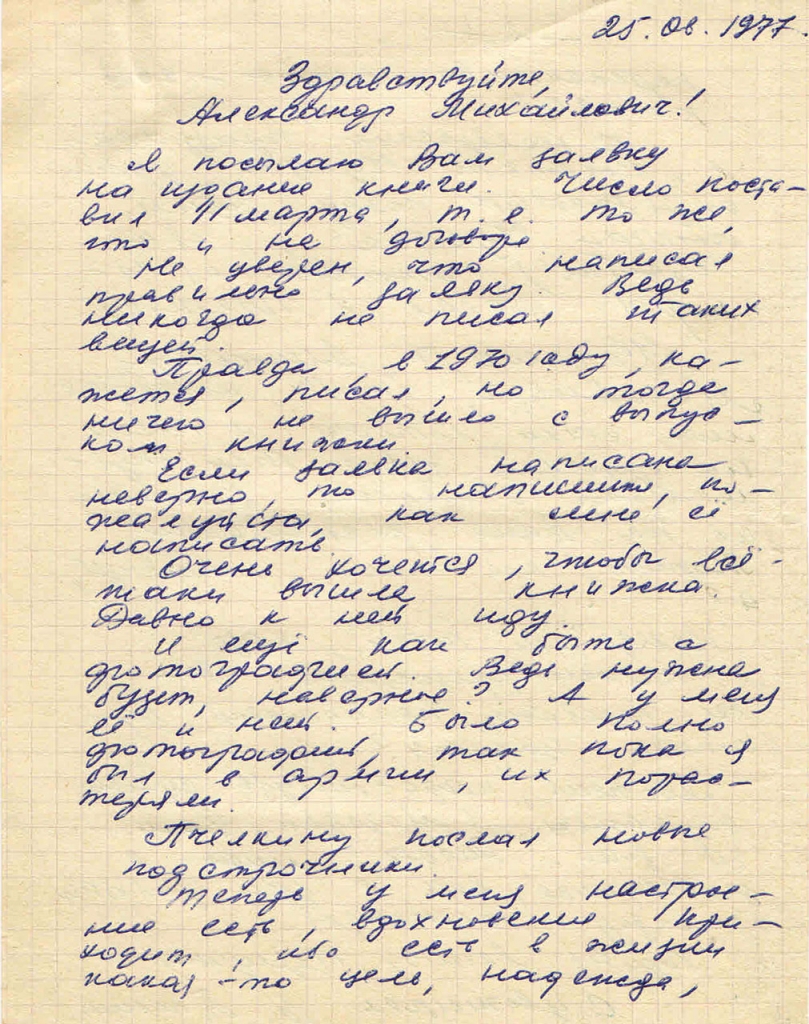 25.08.1977.
Здравствуйте,
Александр Михайлович!
Я посылаю Вам заявку
на издание книги. Число поста-
вил 11 марта, т.е. то же,
что и на договоре
Не уверен, что написал
правильно заявку. Ведь
никогда не писал таких
вещей.
Правда, в 1970 году, ка-
жется, писал, но тогда
ничего не вышло с выпус-
ком книжки.
Если заявка написана
неверно, то напишите, по-
жалуйста, как мне её
написать.
Очень хочется, чтобы всё-
таки вышла книжка.
Давно к ней иду.
И ещё как быть с
фотографией. Ведь нужна
будет, наверное? А у меня
её и нет. Было полно
фотографий, так пока я
был в армии, их порас-
теряли.
Пчелкину послал новые
подстрочники.
Теперь у меня настрое-
ние есть, вдохновение при-
ходит, ибо есть в жизни
какая-то цель, надежда,